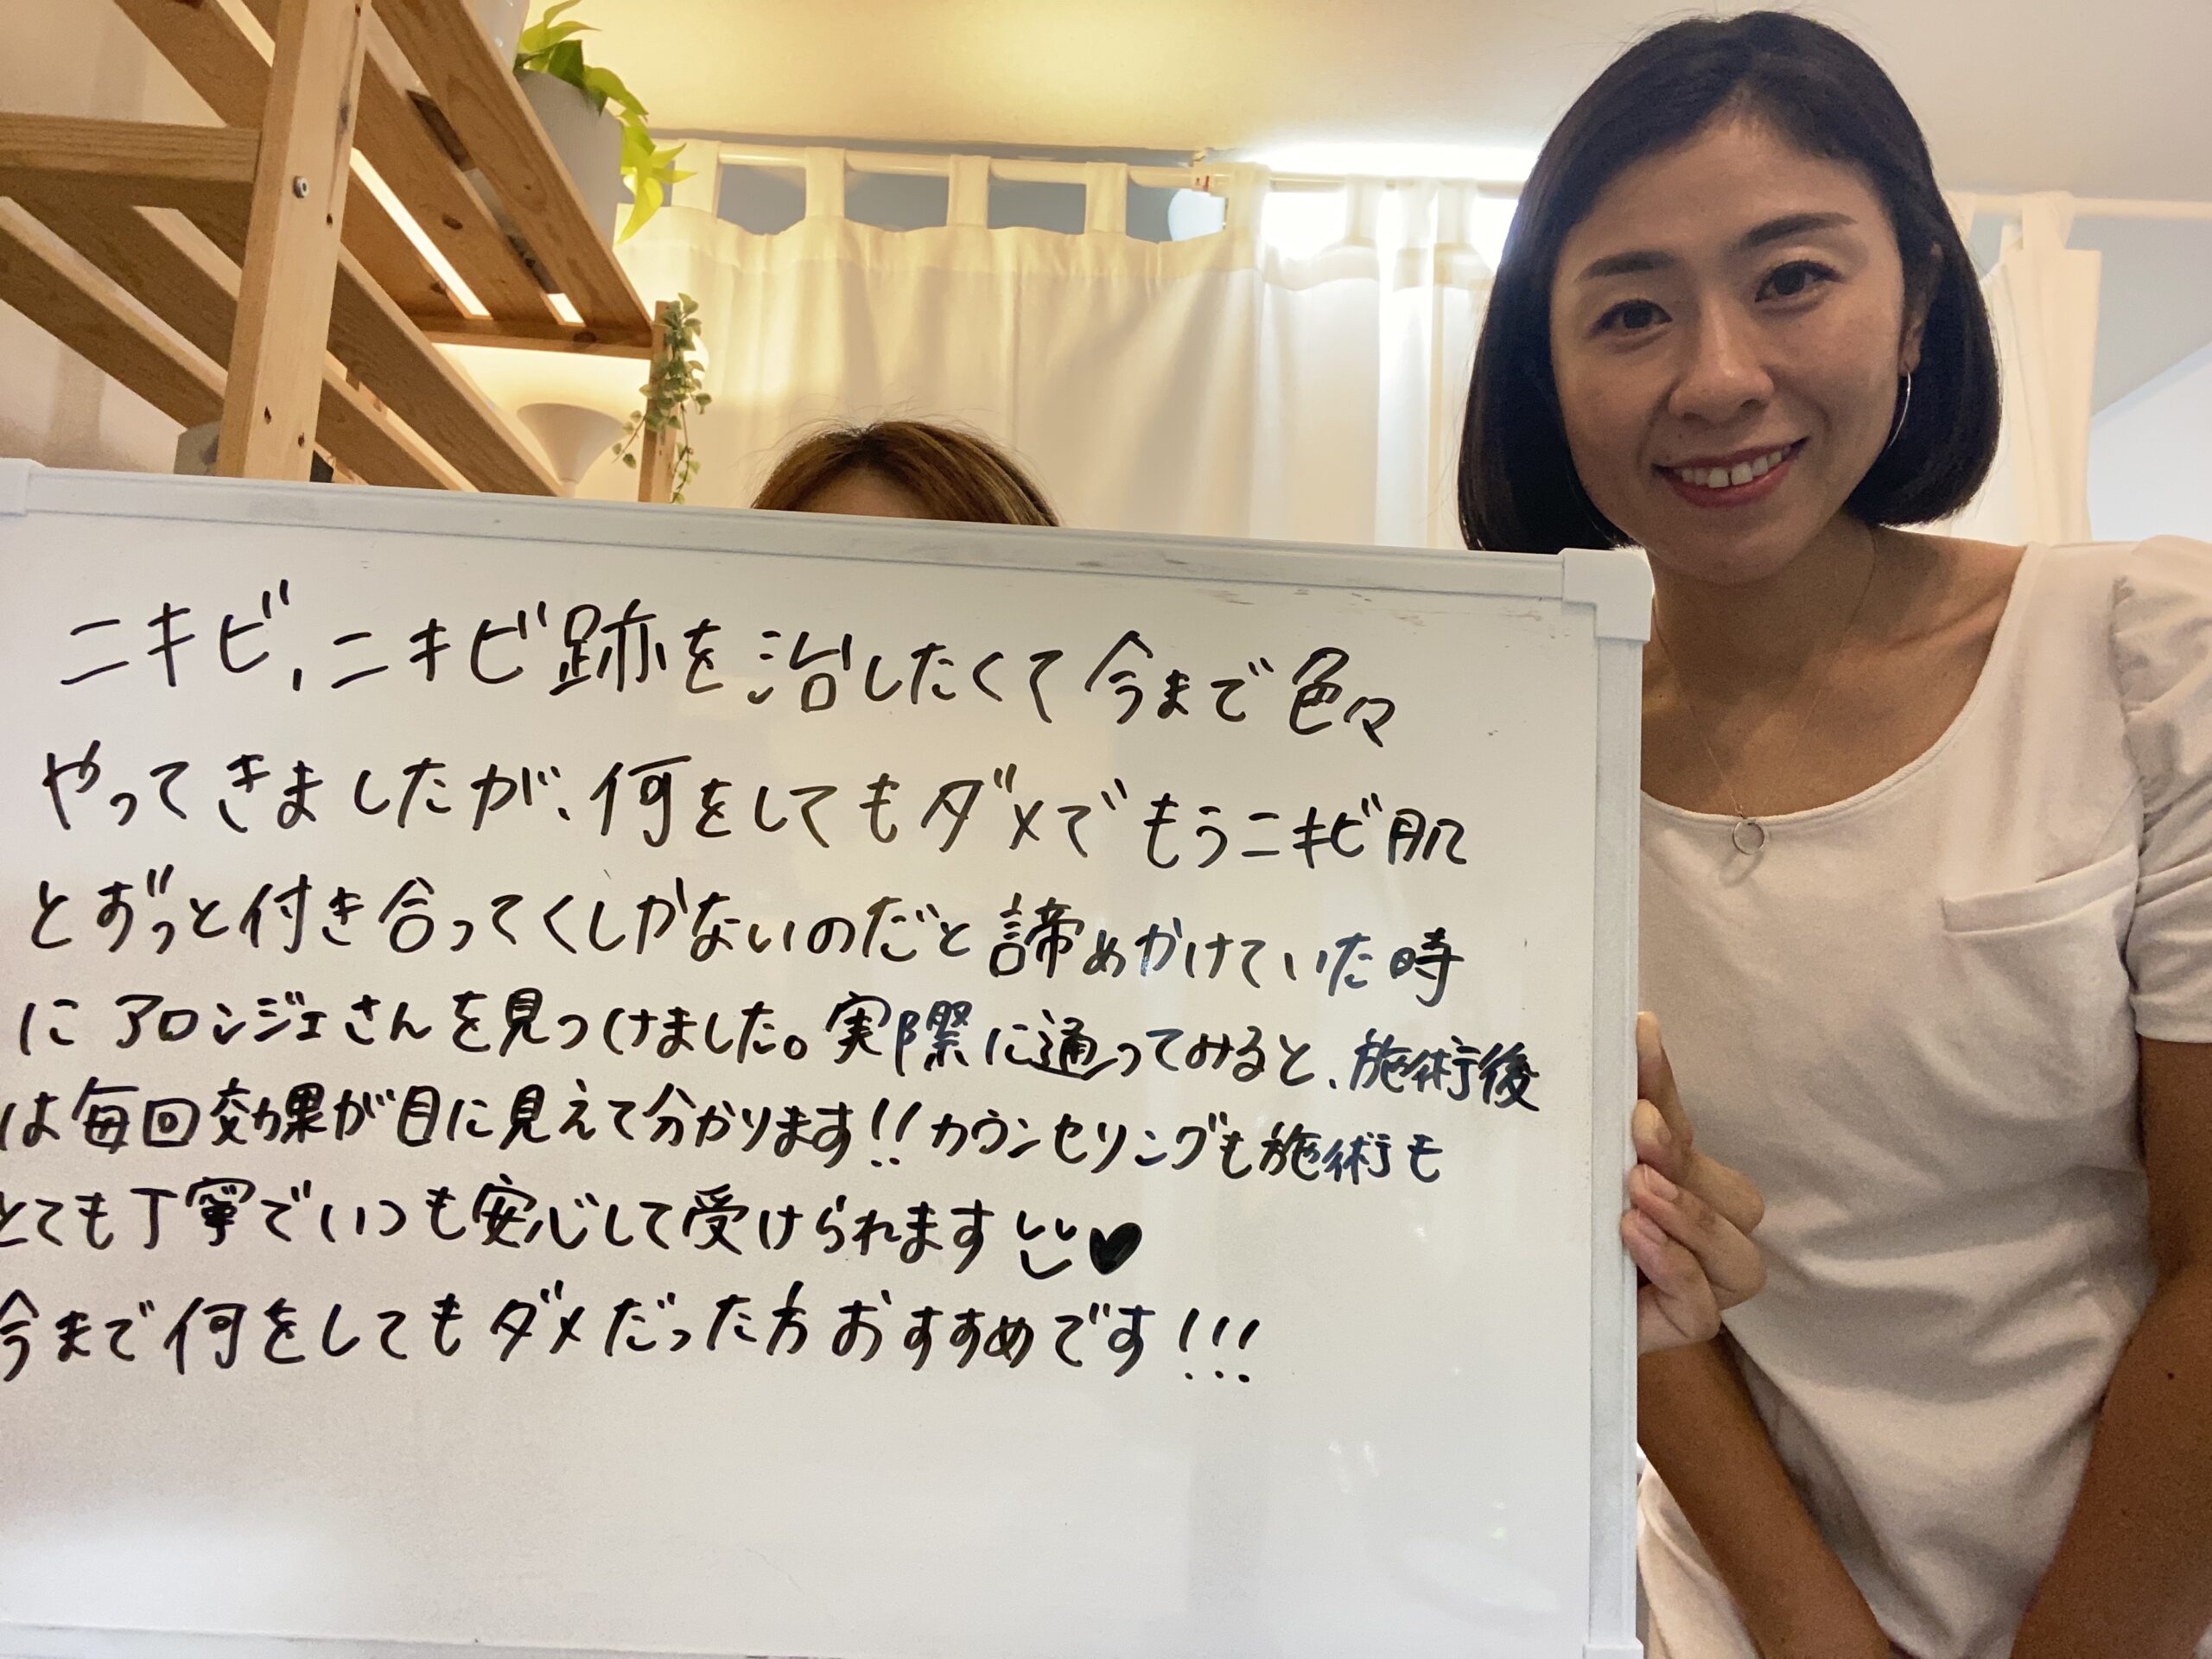 ニキビ、ニキビ跡を治したくて今まで色々
やってきましたが、何をしてもダメでもうニキビ肌
とずっと付き合ってくしかないのだと諦めかけていた時
にアロンジェさんを見つけました。実際に通ってみると、施術後
は毎回効果が目に見えて分かります!!カウンセリングも施術も
とても丁寧でいつも安心して受けられます♥
今まで何をしてもダメだった方おすすめです!!!